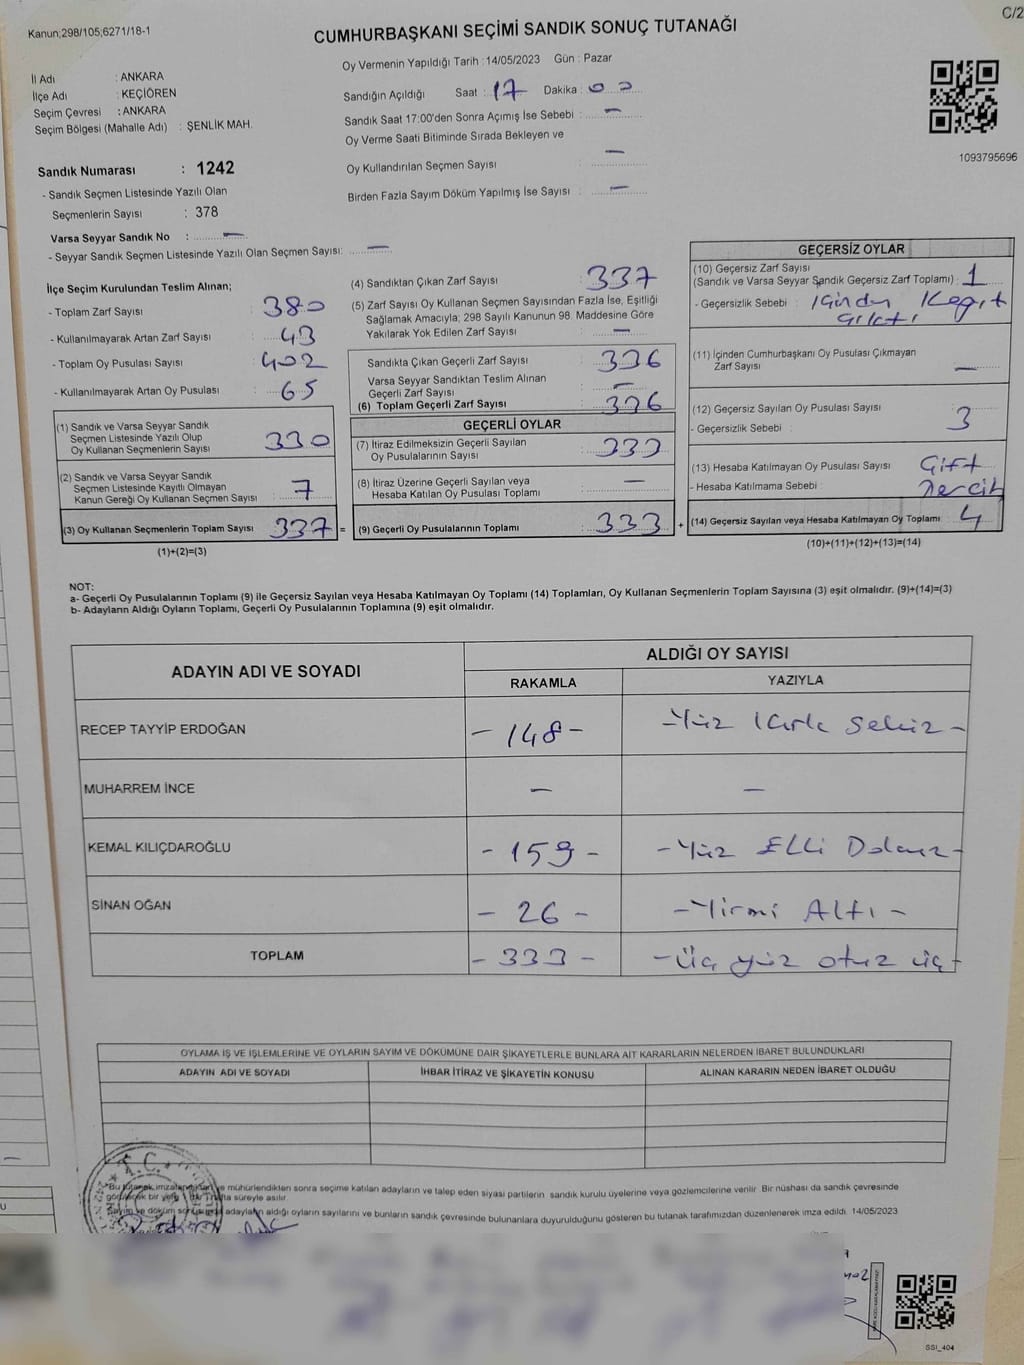 Kanun;298/105;6271/18-1
C/2
CUMHURBAŞKANI SEÇİMİ SANDIK SONUÇ TUTANAĞI
Oy Vermenin Yapıldığı Tarih : 14/05/2023 Gün : Pazar
İl Adı : ANKARA
İlçe Adı : KEÇİÖREN
Seçim Çevresi : ANKARA
Seçim Bölgesi (Mahalle Adı) : ŞENLİK MAH.
Sandığın Açıldığı Saat : 17 Dakika : 00
Sandık Saat 17:00'den Sonra Açımış İse Sebebi : —
Oy Verme Saati Bitiminde Sırada Bekleyen ve
Oy Kullandırılan Seçmen Sayısı —
Birden Fazla Sayım Döküm Yapılmış İse Sayısı : —
1093795696
Sandık Numarası : 1242
- Sandık Seçmen Listesinde Yazılı Olan
Seçmenlerin Sayısı : 378
Varsa Seyyar Sandık No : —
- Seyyar Sandık Seçmen Listesinde Yazılı Olan Seçmen Sayısı: —
İlçe Seçim Kurulundan Teslim Alınan;
- Toplam Zarf Sayısı : 380
- Kullanılmayarak Artan Zarf Sayısı : 43
- Toplam Oy Pusulası Sayısı : 402
- Kullanılmayarak Artan Oy Pusulası : 65
(1) Sandık ve Varsa Seyyar Sandık
Seçmen Listesinde Yazılı Olup
Oy Kullanan Seçmenlerin Sayısı : 330
(2) Sandık ve Varsa Seyyar Sandık
Seçmen Listesinde Kayıtlı Olmayan
Kanun Gereği Oy Kullanan Seçmen Sayısı : 7
(3) Oy Kullanan Seçmenlerin Toplam Sayısı 337 =
(1)+(2)=(3)
(4) Sandıktan Çıkan Zarf Sayısı : 337
(5) Zarf Sayısı Oy Kullanan Seçmen Sayısından Fazla İse, Eşitliği
Sağlamak Amacıyla; 298 Sayılı Kanunun 98. Maddesine Göre
Yakılarak Yok Edilen Zarf Sayısı : —
Sandıkta Çıkan Geçerli Zarf Sayısı : 336
Varsa Seyyar Sandıktan Teslim Alınan
Geçerli Zarf Sayısı : —
(6) Toplam Geçerli Zarf Sayısı : 336
GEÇERLİ OYLAR
(7) İtiraz Edilmeksizin Geçerli Sayılan
Oy Pusulalarının Sayısı : 333
(8) İtiraz Üzerine Geçerli Sayılan veya
Hesaba Katılan Oy Pusulası Toplamı : —
(9) Geçerli Oy Pusulalarının Toplamı : 333 +
GEÇERSİZ OYLAR
(10) Geçersiz Zarf Sayısı
(Sandık ve Varsa Seyyar Sandık Geçersiz Zarf Toplamı) : 1
- Geçersizlik Sebebi :
(11) İçinden Cumhurbaşkanı Oy Pusulası Çıkmayan
Zarf Sayısı : —
(12) Geçersiz Sayılan Oy Pusulası Sayısı : 3
- Geçersizlik Sebebi :
(13) Hesaba Katılmayan Oy Pusulası Sayısı : Çift
- Hesaba Katılmama Sebebi : Tercih
(14) Geçersiz Sayılan veya Hesaba Katılmayan Oy Toplamı : 4
(10)+(11)+(12)+(13)=(14)
NOT:
a- Geçerli Oy Pusulalarının Toplamı (9) ile Geçersiz Sayılan veya Hesaba Katılmayan Oy Toplamı (14) Toplamları, Oy Kullanan Seçmenlerin Toplam Sayısına (3) eşit olmalıdır. (9)+(14)=(3)
b- Adayların Aldığı Oyların Toplamı, Geçerli Oy Pusulalarının Toplamına (9) eşit olmalıdır.
ADAYIN ADI VE SOYADI ALDIĞI OY SAYISI
RAKAMLA YAZIYLA
RECEP TAYYİP ERDOĞAN - 148 - - Yüz Kırk Sekiz -
MUHARREM İNCE — —
KEMAL KILIÇDAROĞLU - 159 - - Yüz Elli Dokuz -
SİNAN OĞAN - 26 - - Yirmi Altı -
TOPLAM - 333 - - Üç yüz otuz üç -
OYLAMA İŞ VE İŞLEMLERİNE VE OYLARIN SAYIM VE DÖKÜMÜNE DAİR ŞİKAYETLERLE BUNLARA AİT KARARLARIN NELERDEN İBARET BULUNDUKLARI
ADAYIN ADI VE SOYADI İHBAR İTİRAZ VE ŞİKAYETİN KONUSU ALINAN KARARIN NEDEN İBARET OLDUĞU
T.C.
mühürlendikten sonra seçime katılan adayların ve talep eden siyasi partilerin sandık kurulu üyelerine veya gözlemcilerine verilir. Bir nüshası da sandık çevresinde
süreyle asılır.
adayların aldığı oyların sayılarını ve bunların sandık çevresinde bulunanlara duyurulduğunu gösteren bu tutanak tarafımızdan düzenlenerek imza edildi. 14/05/2023
SSI_404